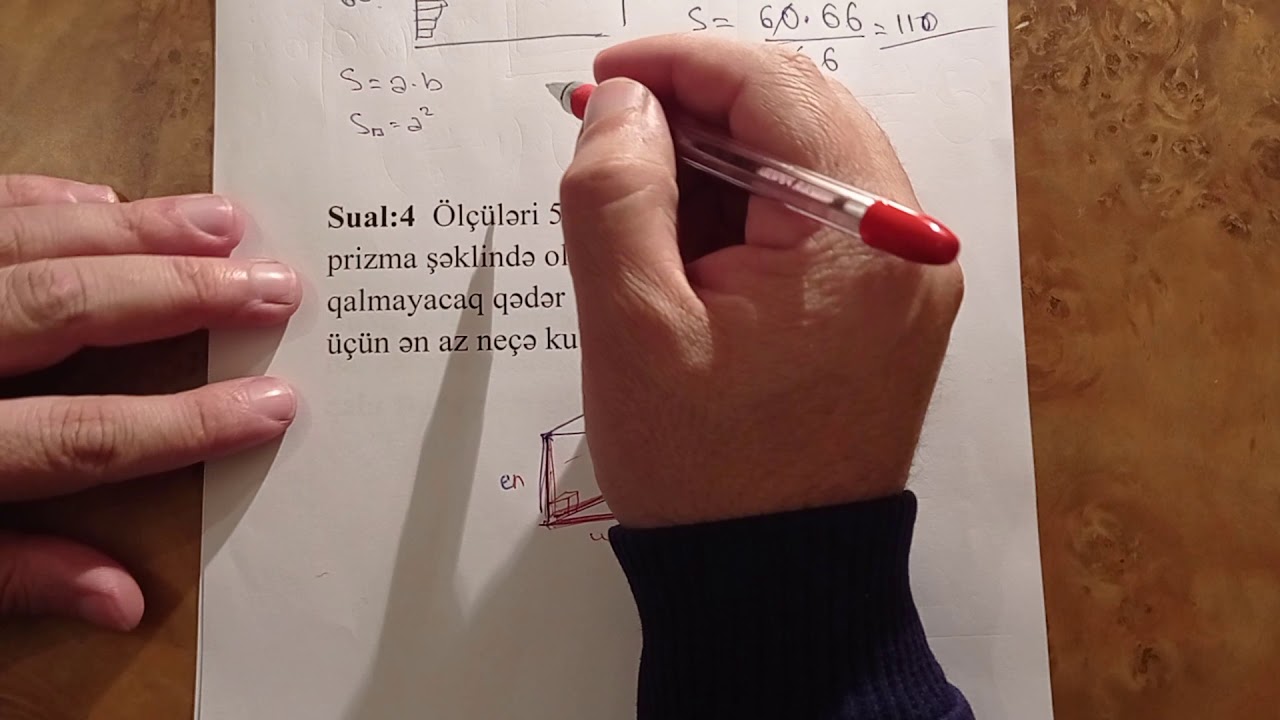 S = 60·66 = 110
6
S=a·b
S□=a²
Sual:4 Ölçüləri 5
prizma şəklində
qalmayacaq qədər
üçün ən az neçə
en